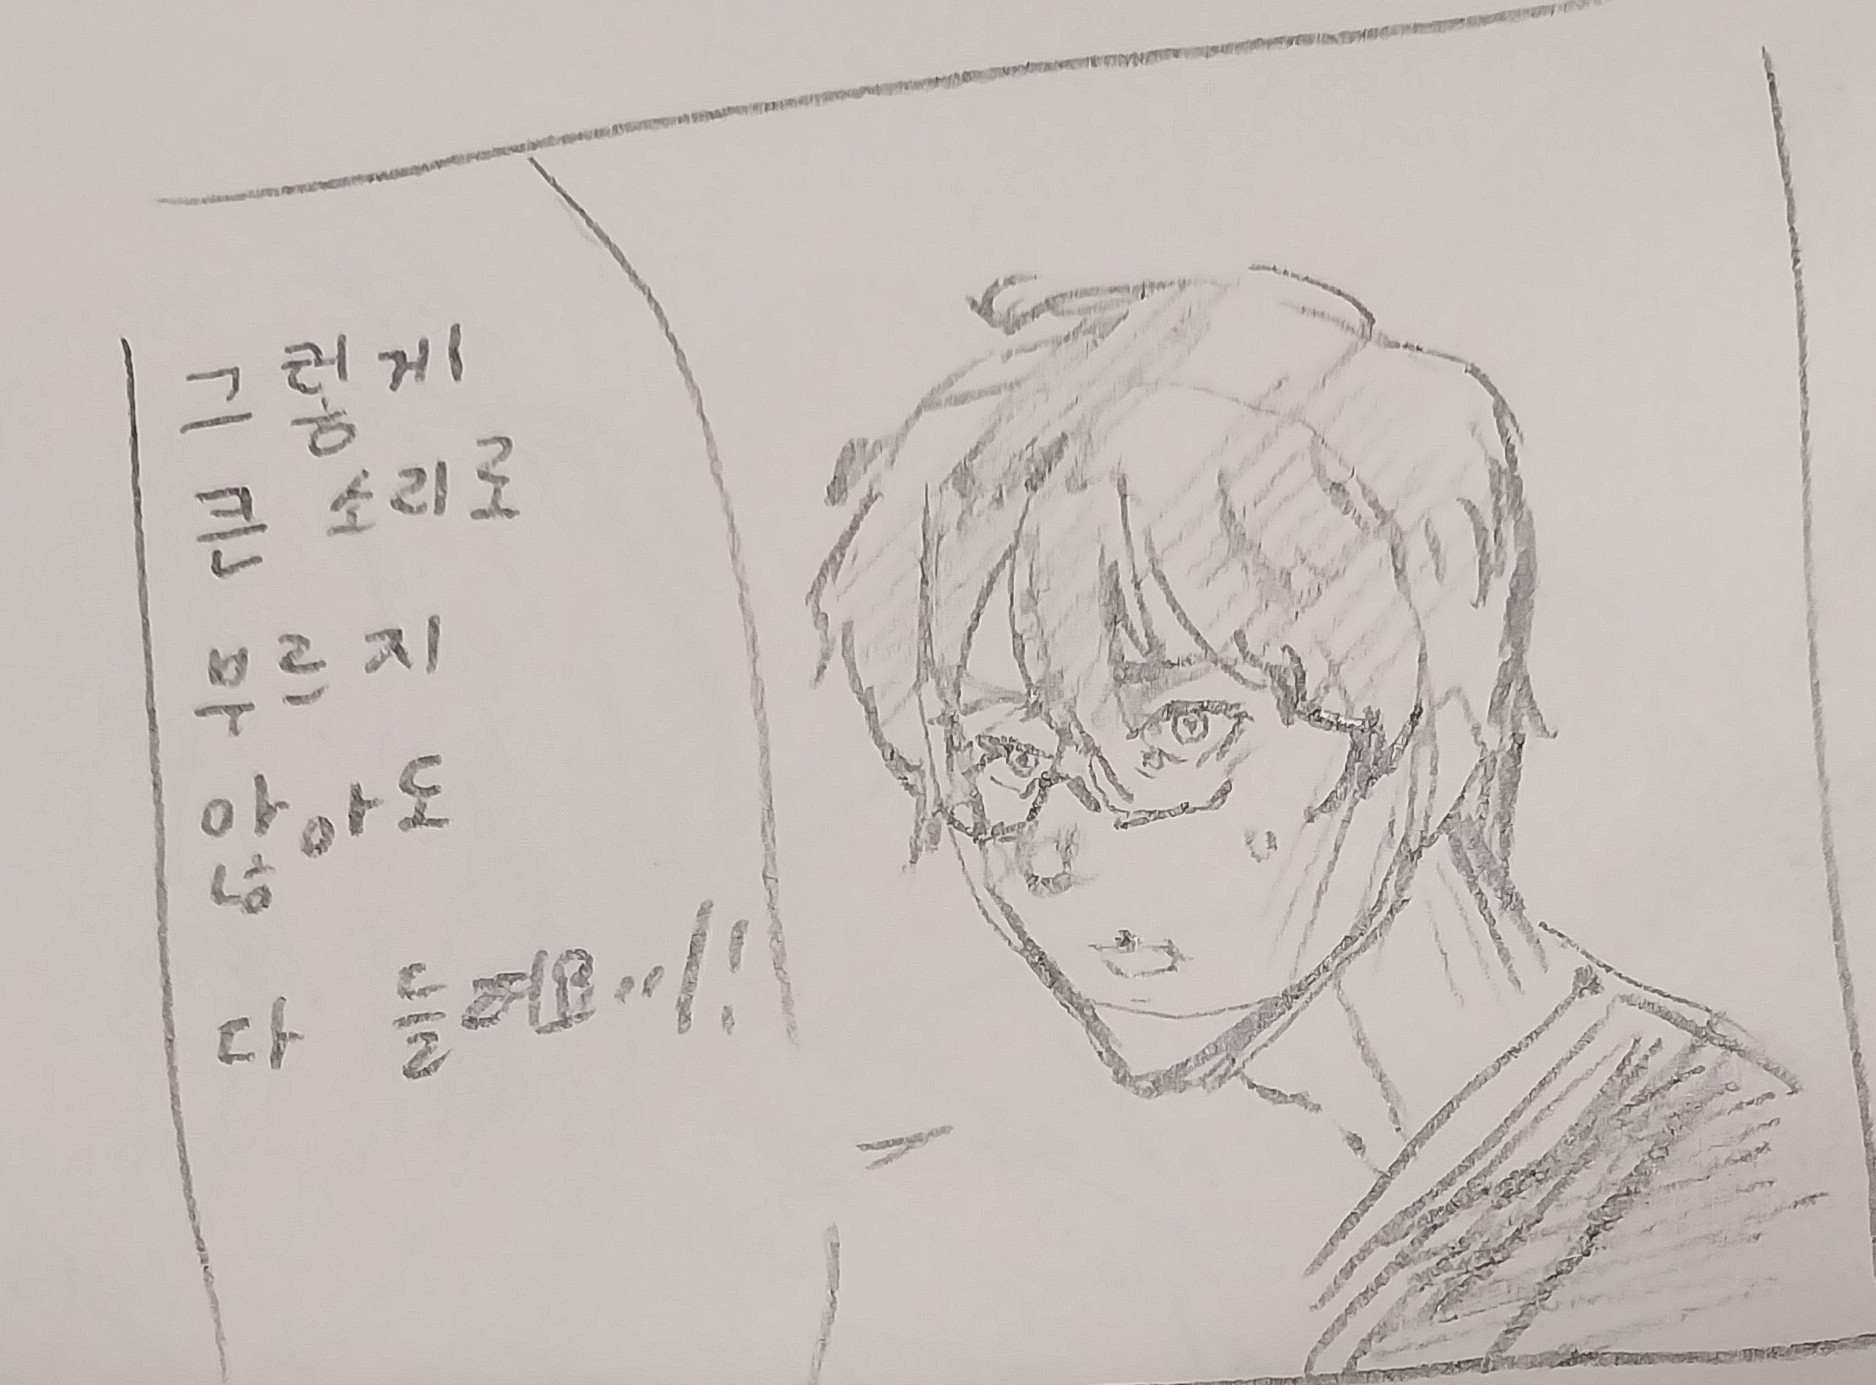 그렇게
큰 소리로
부르지
않아도
다 들어요..!!